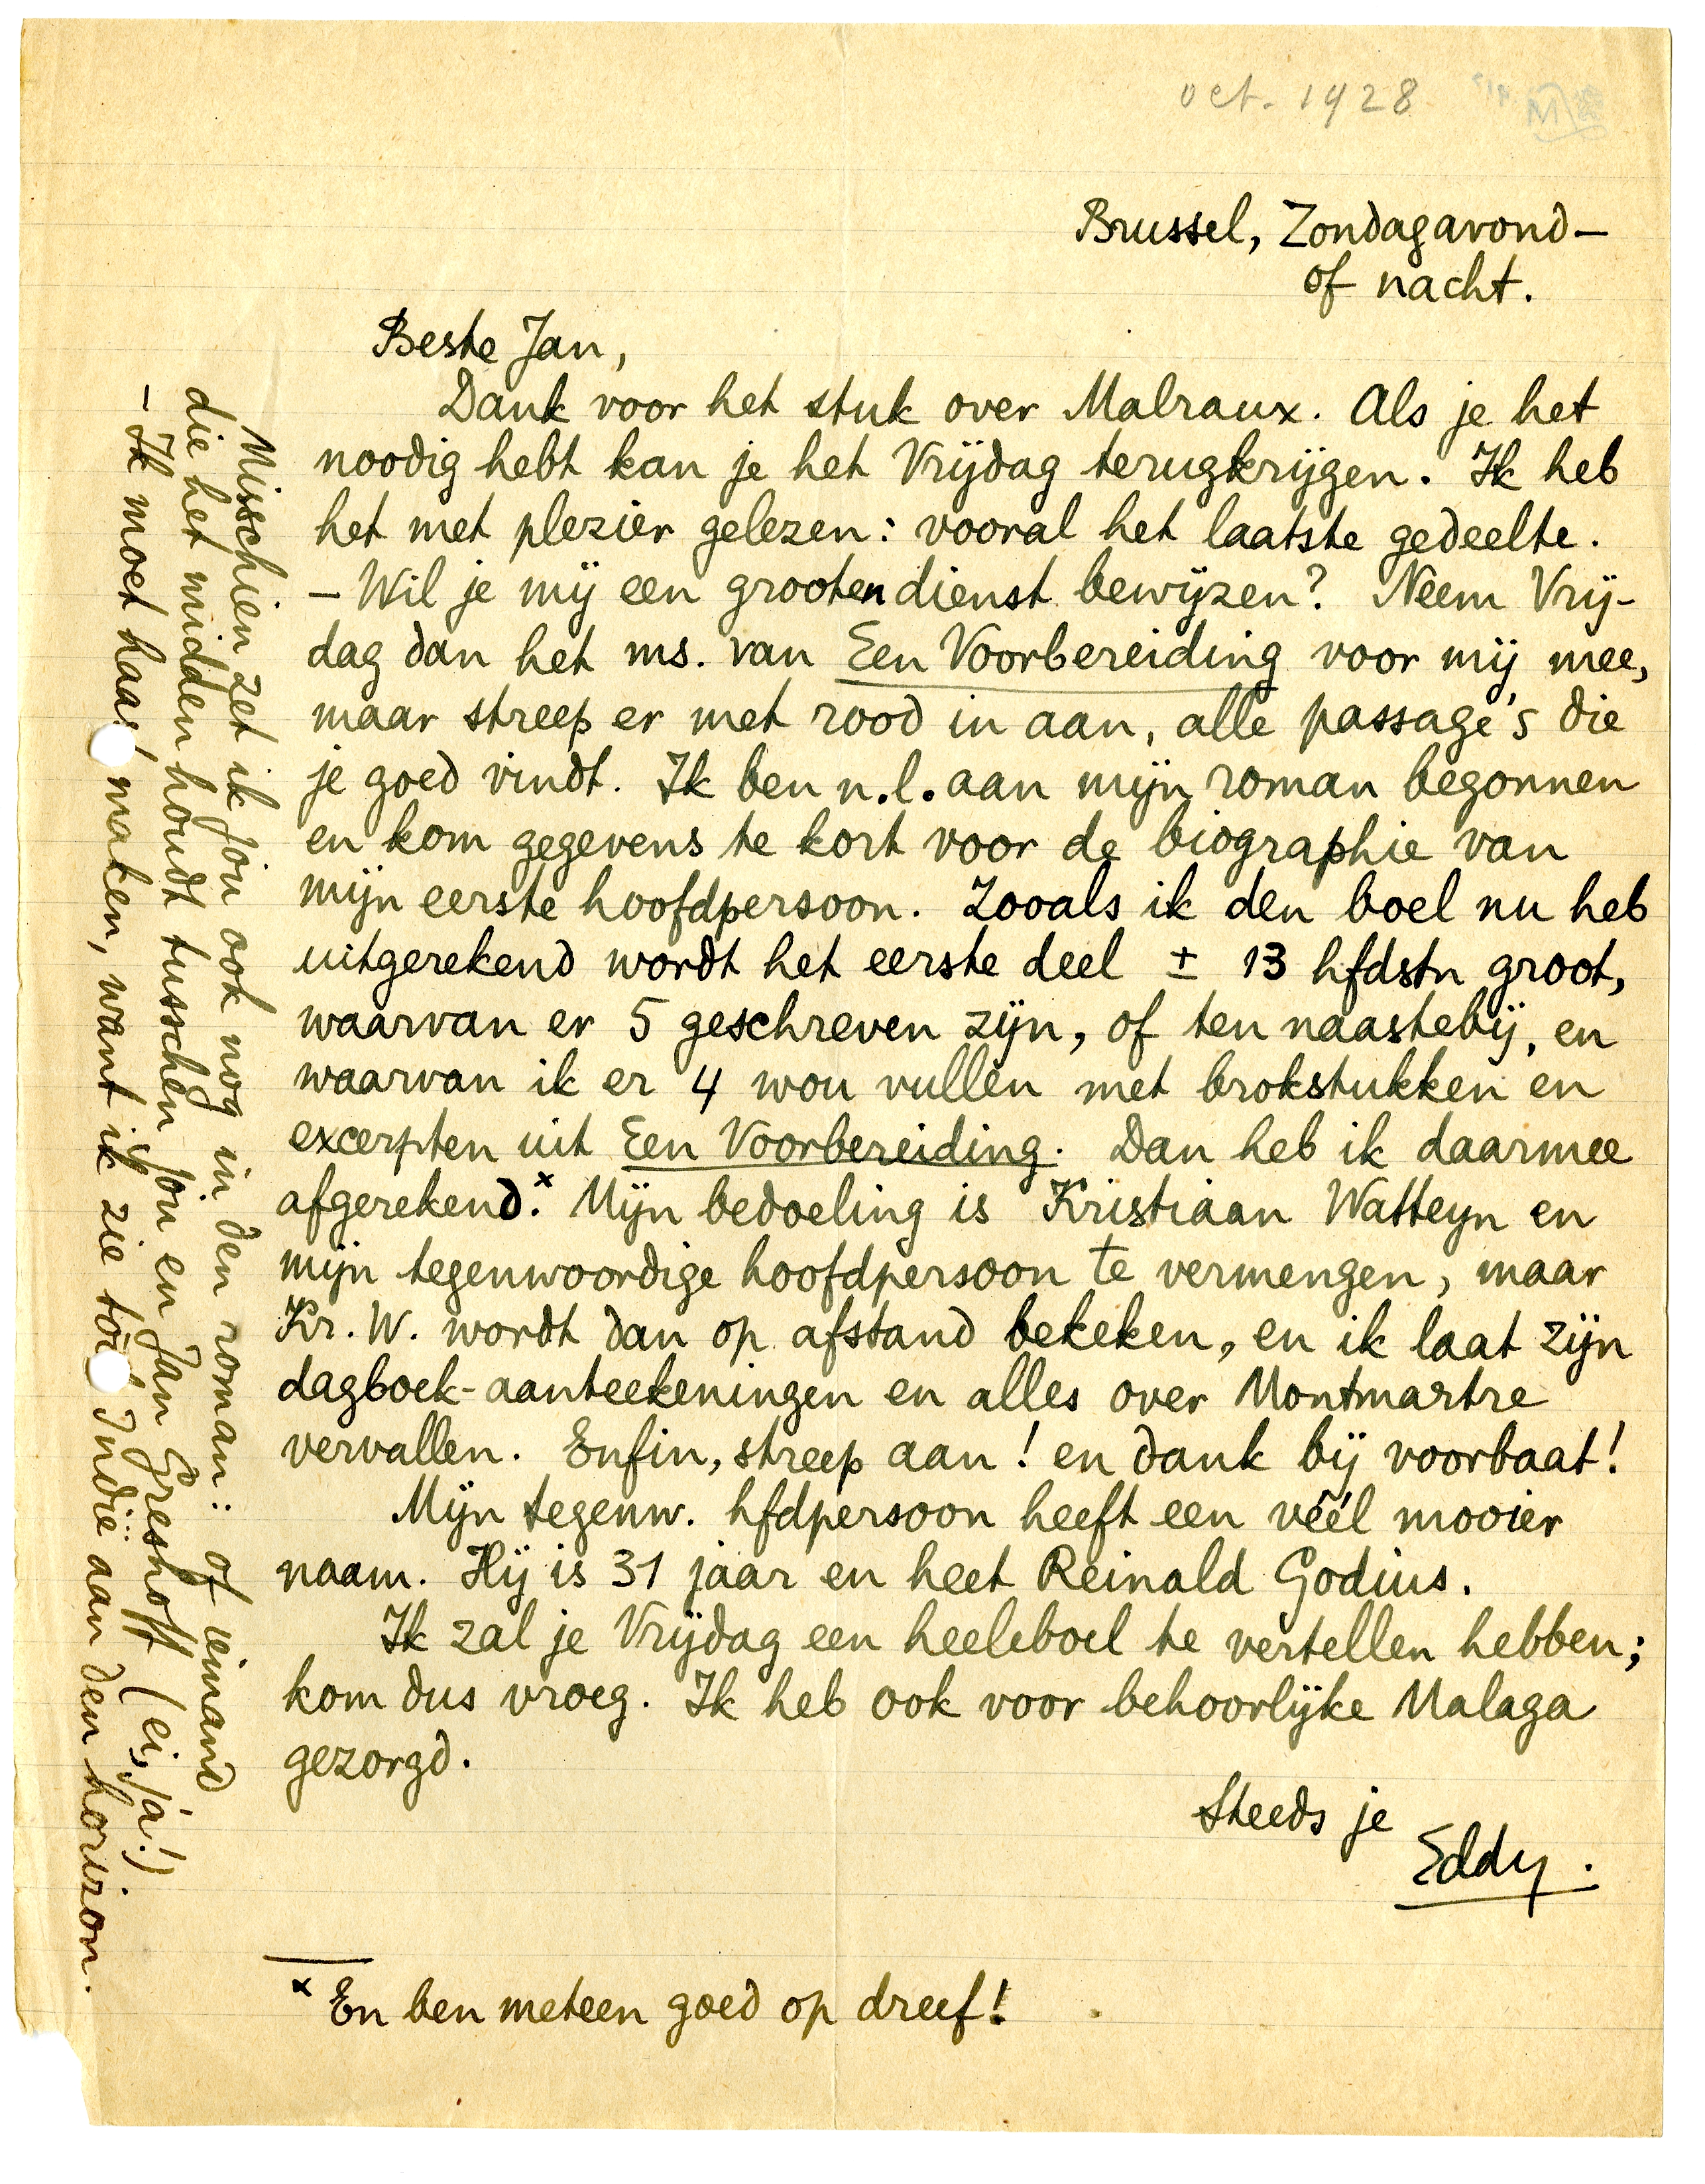 oct. 1928
Brussel, Zondagavond–
of nacht.
Beste Jan,
Dank voor het stuk over Malraux. Als je het
noodig hebt kan je het Vrijdag terugkrijgen. Ik heb
het met plezier gelezen: vooral het laatste gedeelte.
– Wil je mij een grooten dienst bewijzen? Neem Vrij-
dag dan het ms. van Een Voorbereiding voor mij mee,
maar streep er met rood in aan, alle passage's die
je goed vindt. Ik ben n.l. aan mijn roman begonnen
en kom gegevens te kort voor de biographie van
mijn eerste hoofdpersoon. Zooals ik den boel nu heb
uitgerekend wordt het eerste deel ± 13 hfdstn groot,
waarvan er 5 geschreven zijn, of ten naastebij, en
waarvan ik er 4 wou vullen met brokstukken en
excerpten uit Een Voorbereiding. Dan heb ik daarmee
afgerekend.x Mijn bedoeling is Kristiaan Watteyn en
mijn tegenwoordige hoofdpersoon te vermengen, maar
Kr. W. wordt dan op afstand bekeken, en ik laat zijn
dagboek-aanteekeningen en alles over Montmartre
vervallen. Enfin, streep aan! en dank bij voorbaat!
Mijn tegenw. hfdpersoon heeft een véél mooier
naam. Hij is 31 jaar en heet Reinald Godius.
Ik zal je Vrijdag een heeleboel te vertellen hebben;
kom dus vroeg. Ik heb ook voor behoorlijke Malaga
gezorgd.
Steeds je
Eddy.
x En ben meteen goed op dreef!
Misschien zet ik jou ook nog in den roman: of iemand
die het midden houdt tusschen jou en Jan Greshoff (ei, ja!)
– Ik moet haast maken, want ik zie tóch Indië aan den horizon.